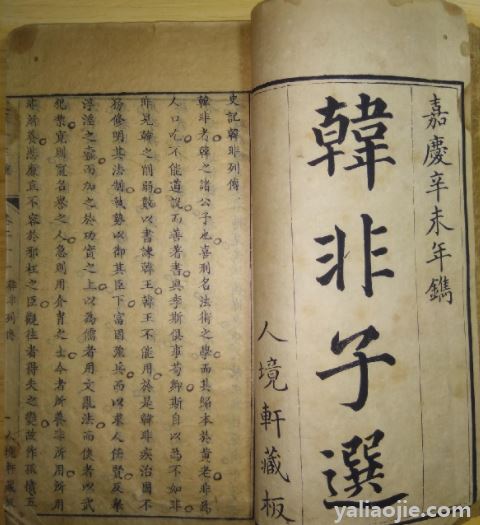 嘉慶辛未年鐫
韓非子選
人境軒藏板
史記韓非列傳
韓非者韓之諸公子也喜刑名法術之學而其歸本於黃老非爲
人口吃不能道說而善著書與李斯俱事荀卿斯自以爲不如非
非見韓之削弱數以書諫韓王韓王不能用於是韓非疾治國不
務修明其法制執勢以御其臣下富國彊兵而以求人任賢反舉
浮淫之蠹而加之於功實之上以爲儒者用文亂法而俠者以武
犯禁寬則寵名譽之人急則用介冑之士今者所養非所用所用
非所養悲廉直不容於邪枉之臣觀往者得失之變故作孤憤五
韓非列傳
人境軒藏板
yaliaojie.com